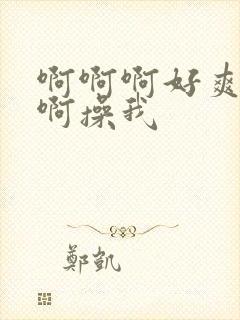 啊啊啊好爽
啊操我
鄭凱